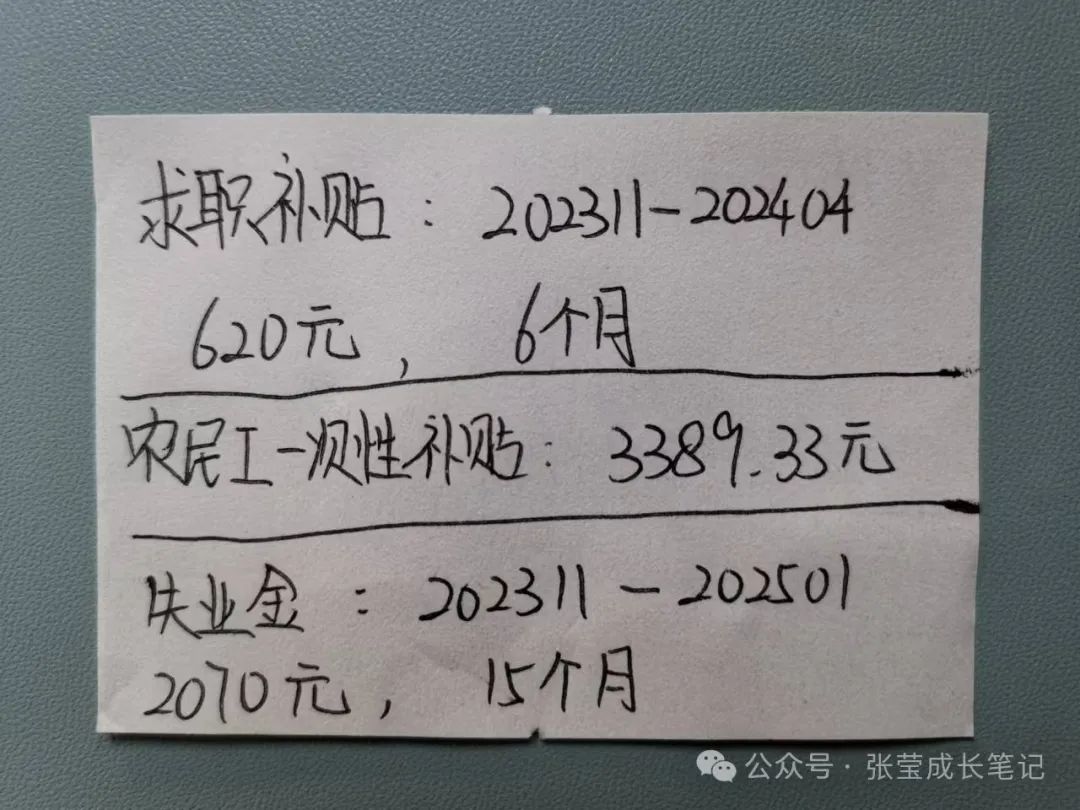 求职补贴：202311-202404
620元， 6个月
农民工一次性补贴：3389.33元
失业金：202311-202501
2070元， 15个月
公众号·张莹成长笔记